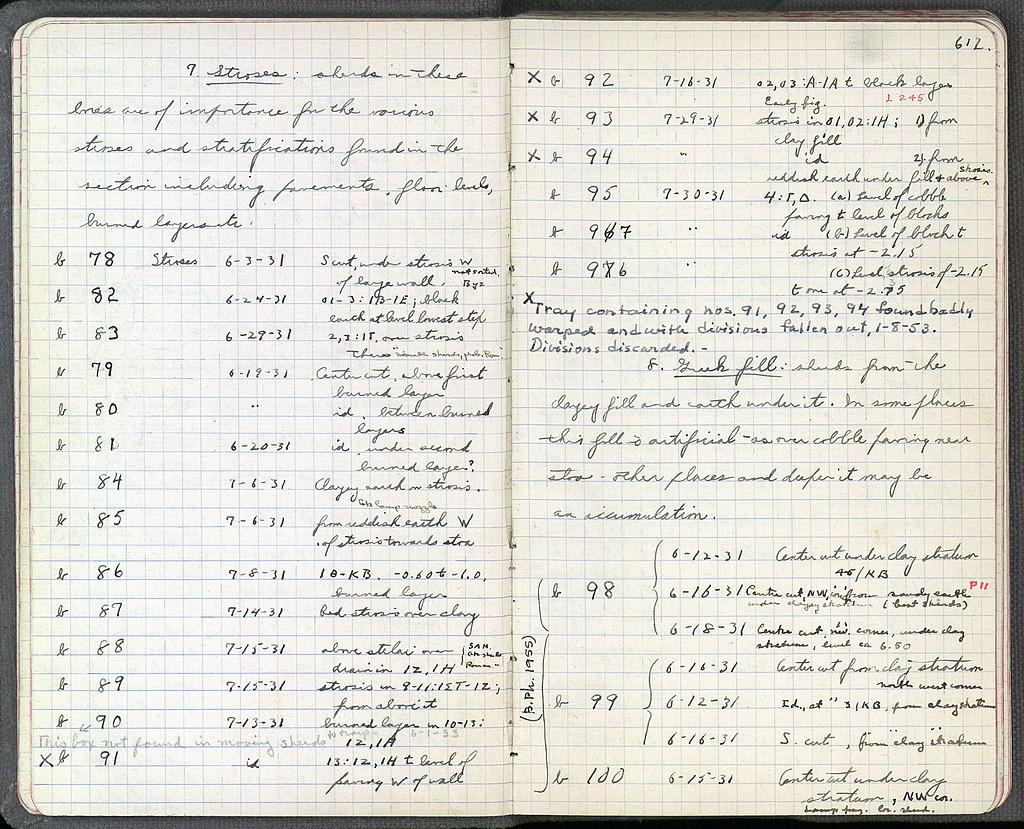 9. Stroses: sherds in these
boxes are of importance for the various
stroses and stratifications found in the
section including pavements, floor levels,
burned layers etc.
b 78 Stroses 6-3-31 S cut, under strosis W
of large wall. not sorted. Byz
b 82 6-24-31 01-3:1B-1E; black
earth at level lowest step
b 83 6-29-31 2,3:1T, over strosis
b 79 6-19-31 Center cut, above first
burned layer
b 80 " id. between burned
layers
b 81 6-20-31 id. under second
burned layer?
b 84 7-6-31 Clayey earth on strosis.
Gk lamp nozzle
b 85 7-6-31 from reddish earth W
of strosis towards stoa
b 86 7-8-31 1Θ-KB. -0.60 t -1.0,
burned layer
b 87 7-14-31 Bed strosis over clay
b 88 7-15-31 above stelai over
drain in 12, 1H
b 89 7-15-31 strosis in 9-11:15T-12;
from above it
b 90 7-13-31 burned layer in 10-13:
12, 1A
This box not found in moving sherds 6-1-53
X b 91 id 13:12, 1H to level of
paving W of wall
612.
X b 92 7-16-31 02,03:A-1A t black layer
Early fig. L 245
X b 93 7-29-31 strosis in 01,02:1H; 1) from
clay fill
X b 94 " id 2). from
reddish earth under fill & above strosis.
b 95 7-30-31 4:Γ,Δ. (a) Level of cobble
paving to level of blocks
b 967 " id (b) Level of block t
strosis at -2.15
b 976 " (c) Level strosis of -2.15
t one at -2.75
X Tray containing nos. 91, 92, 93, 94 found badly
warped and with divisions fallen out, 1-8-53.
Divisions discarded. -
8. Greek fill: sherds from the
clayey fill and earth under it. In some places
this fill is artificial - as over cobble paving near
stoa - other places and deeper it may be
an accumulation.
(B.Ph. 1955)
b 98 6-12-31 Center cut under clay stratum
45/KB
6-16-31 Center cut, NW cor. from sandy earth P11
under clayey stratum (best sherds)
6-18-31 Center cut, nw. corner, under clay
stratum, level ca 6.50
b 99 6-16-31 Center cut from clay stratum
north west corner
6-12-31 Id., at " 31KB, from clay stratum
6-16-31 S. cut, from "clay" stratum
b 100 6-15-31 Center cut under clay
stratum, NW cor.